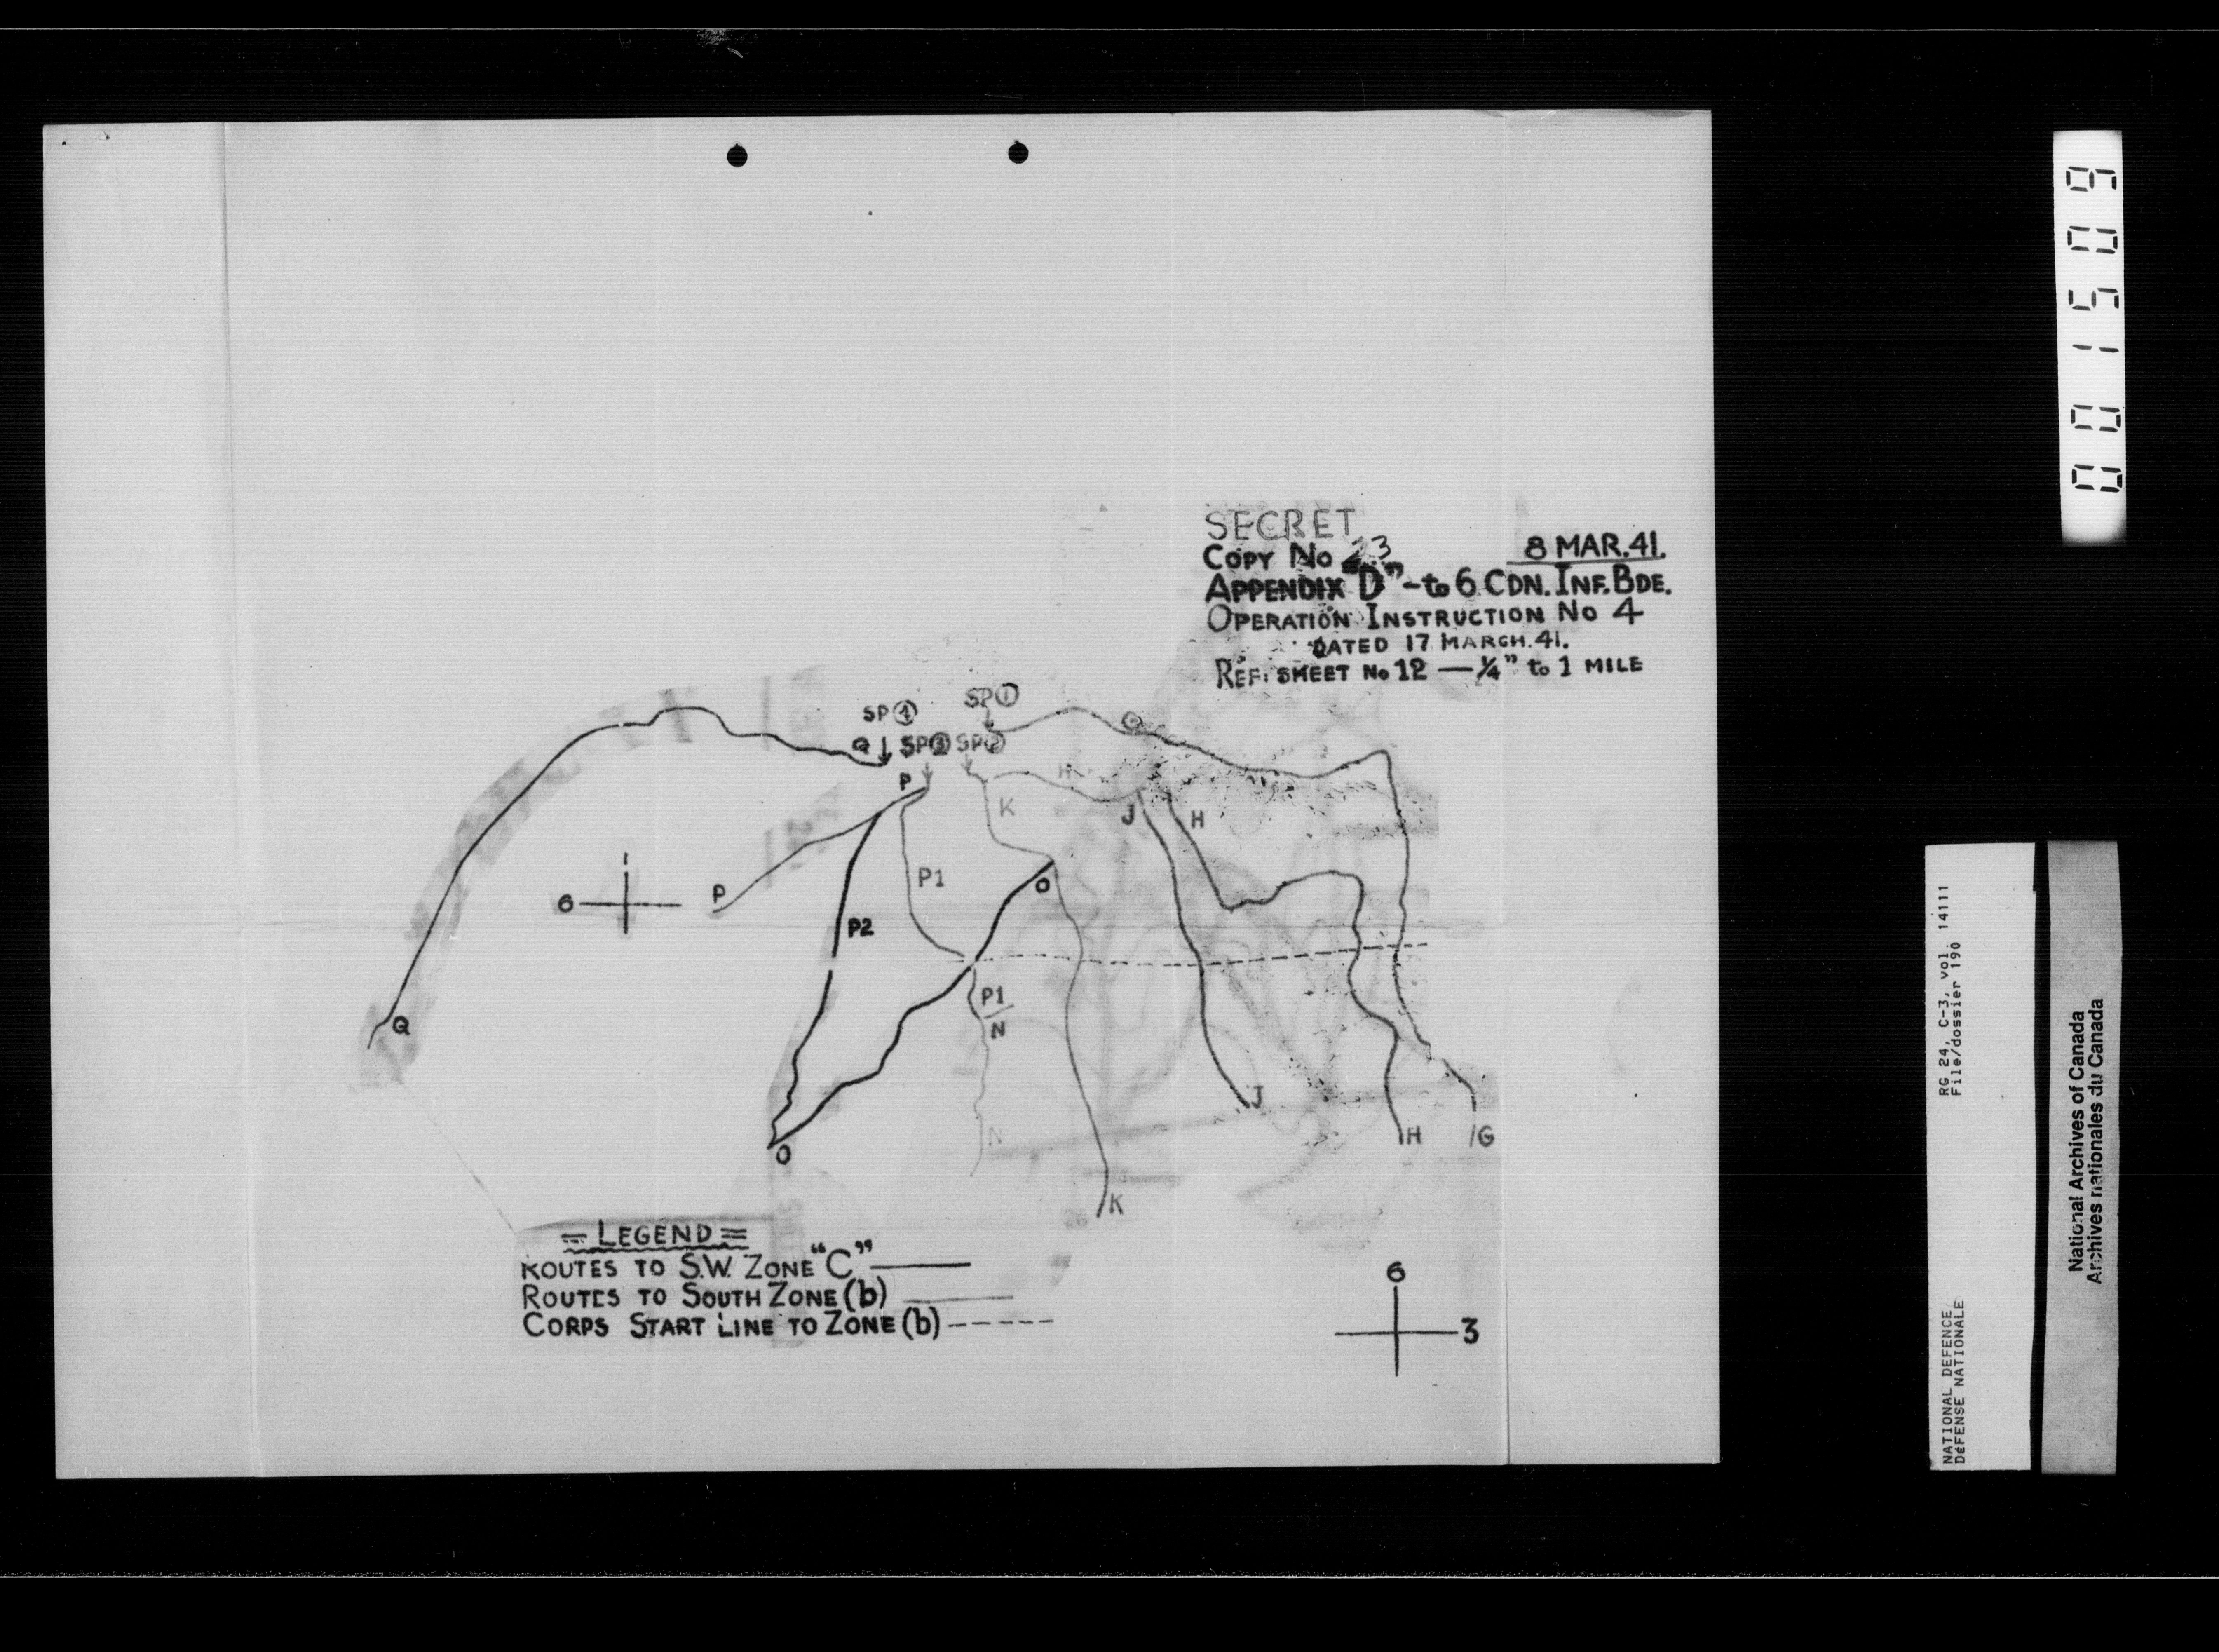 SECRET
COPY No 23
8 MAR.41.
APPENDIX "D" - to 6 CDN. INF. BDE.
OPERATION INSTRUCTION No 4
DATED 17 MARCH.41.
REF: SHEET No 12 — ¼" to 1 MILE
SP 1
SP 4
Q SP 3 SP 2
G
P
H
K
J
H
P1
P
O
6
P2
P1
N
Q
J
N
H
G
O
K
= LEGEND =
ROUTES TO S.W. ZONE "C"
ROUTES TO SOUTH ZONE (b)
CORPS START LINE TO ZONE (b)
6
3
0001509
RG 24, C-3, vol. 14111
File/dossier 190
NATIONAL DEFENCE
DÉFENSE NATIONALE
National Archives of Canada
Archives nationales du Canada